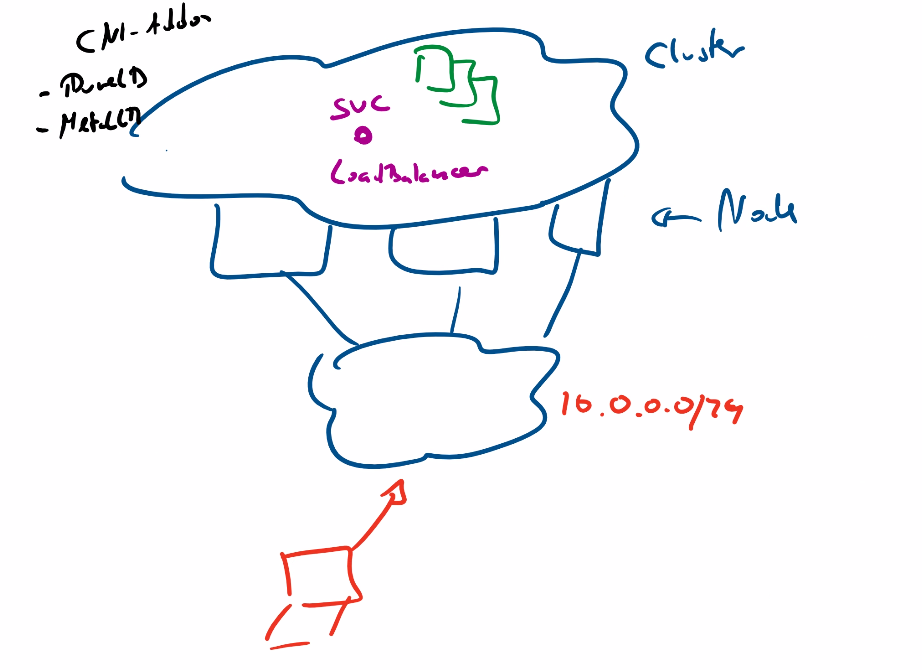 CNI-Addon
- PureLB
- MetalLB
Cluster
SVC
LoadBalancer
← Node
10.0.0.0/24